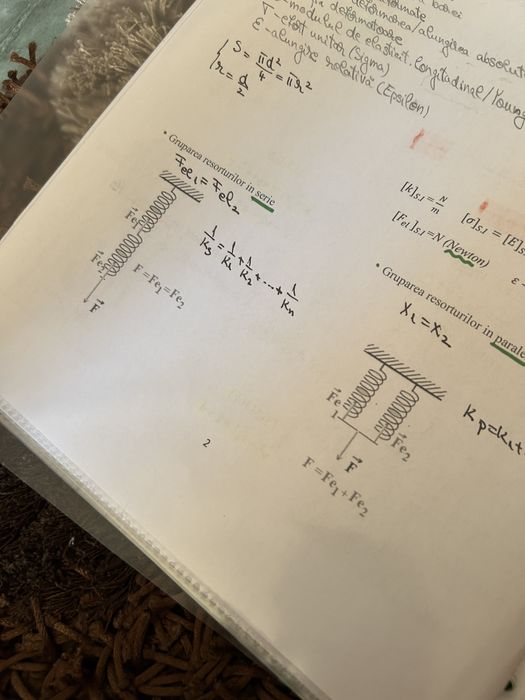 deformarea/alungirea absolut
deformatoare
modulul de elasticit. longitudinal/Young
T-efort unitar (Sigma)
ε-alungire relativă (Epsilon)
S = πd²/4 = πr²
r = d/2
• Gruparea resorturilor in serie
Fel₁ = Fel₂
1/Ks = 1/K₁ + 1/K₂ + ... + 1/Kn
Fe₁
Fe₂
F
F=Fe₁=Fe₂
[k]S.I = N/m
[σ]S.I = [E]S
[Fel]S.I=N (Newton)
ε
• Gruparea resorturilor in parale
X₁ = X₂
Kp=K₁+
Fe₁
Fe₂
F
F=Fe₁+Fe₂
2